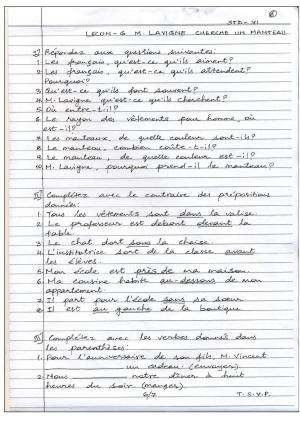 6
STD - VI
LECON-6 M. LAVIGNE CHERCHE UN MANTEAU.
I) Répondez aux questions suivantes:
1. Les français, qu'est-ce qu'ils aiment?
2. Les français, qu'est-ce qu'ils attendent?
Pourquoi?
3. Qu'est-ce qu'ils font souvent?
4. M. Lavigne qu'est-ce qu'ils cherchent?
5. Où entre-t-il?
6. Le rayon des vêtements pour homme, où
est-il?
7. Les manteaux, de quelle couleur sont-ils?
8. Le manteau, combien coûte-t-il?
9. Le manteau, de quelle couleur est-il?
10. M. Lavigne, pourquoi prend-il le manteau?
II) Complétez avec le contraire des prépositions
données:
1. Tous les vêtements sont dans la valise.
2. Le professeur est debout devant la
table.
3. Le chat dort sous la chaise.
4. L'institutrice sort de la classe avant
les élèves.
5. Mon école est près de ma maison.
6. Ma cousine habite au-dessous de mon
appartement.
7. Il part pour l'école sans sa soeur.
8. Il est au gauche de la boutique
III) Complétez avec les verbes donnés dans
les parenthèses:
1. Pour l'anniversaire de son fils, M. Vincent
un cadeau. (envoyer).
2. Nous notre dîner à huit
heures du soir. (manger).
G/7 T.S.V.P.